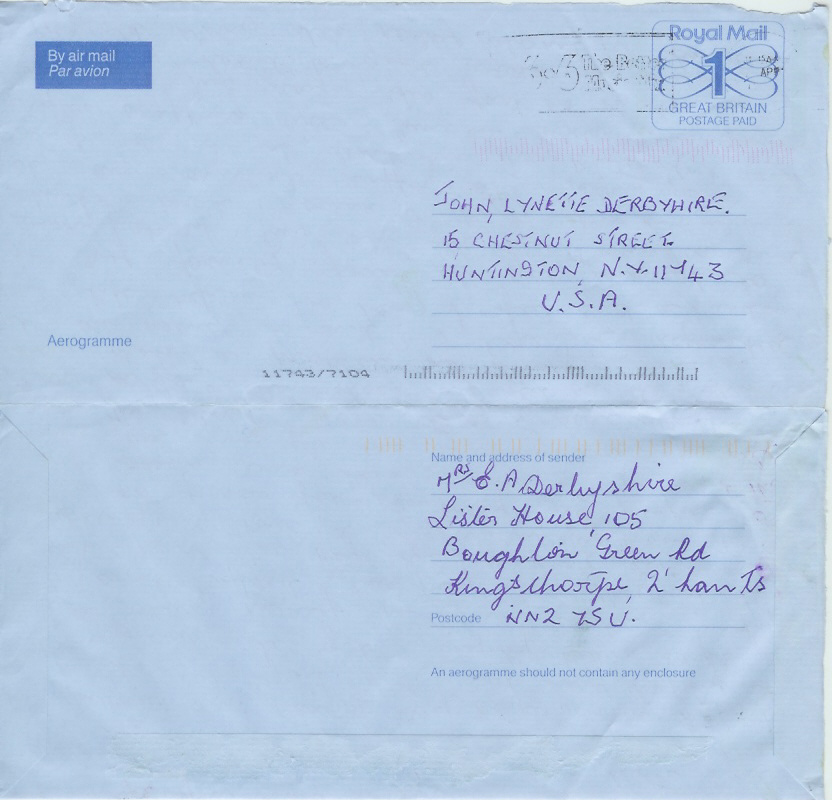 By air mail
Par avion
Royal Mail
1
GREAT BRITAIN
POSTAGE PAID
APR
JOHN, LYNETTE DERBYHIRE.
15 CHESTNUT STREET.
HUNTINGTON, N.Y. 11743
U.S.A.
Aerogramme
11743/7104
Name and address of sender
Mrs E. A Derbyshire
Lister House, 105
Boughton Green Rd
Kingsthorpe, N'hants
Postcode NN2 7SU.
An aerogramme should not contain any enclosure